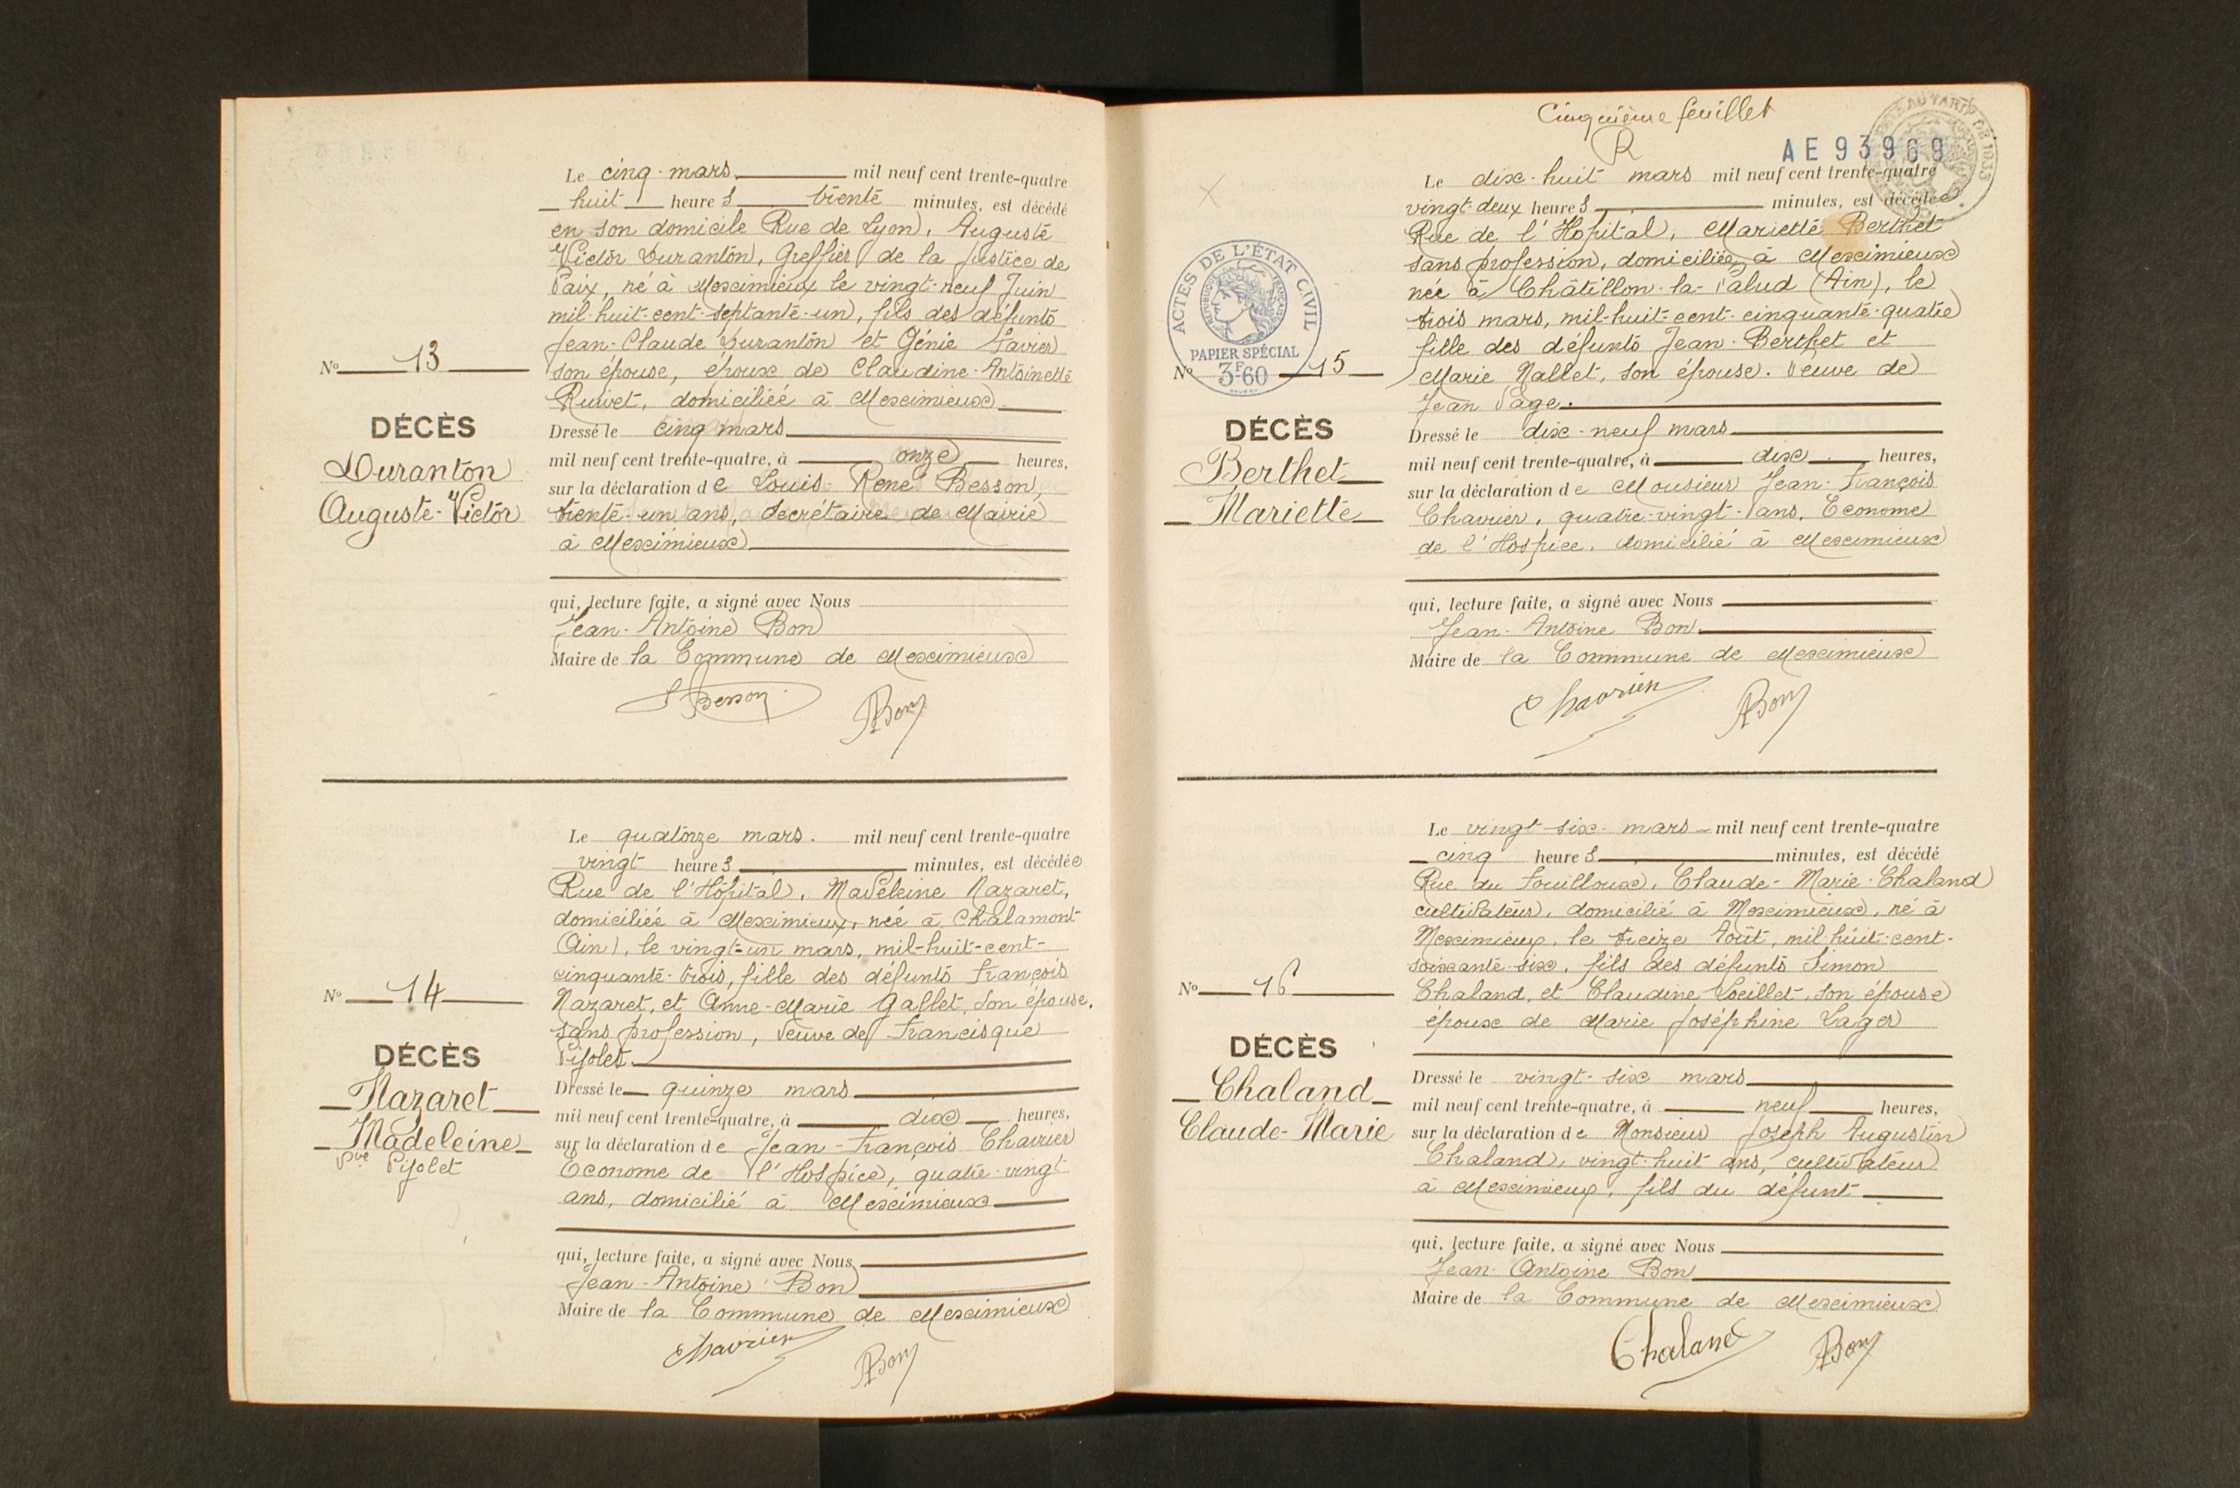 Le cinq mars mil neuf cent trente-quatre
huit heures trente minutes, est décédé
en son domicile Rue de Lyon, Auguste
Victor Duranton, Greffier de la Justice de
Paix, né à Meximieux le vingt-neuf Juin
mil-huit-cent-septante-un, fils des défunts
Jean-Claude Duranton et Génie Favier
son épouse, époux de Claudine-Antoinette
Ruivet, domiciliée à Meximieux
No 13
DÉCÈS
Duranton
Auguste-Victor
Dressé le cinq mars
mil neuf cent trente-quatre, à onze heures,
sur la déclaration de Louis-René Besson,
trente-un ans, Secrétaire de Mairie
à Meximieux
qui, lecture faite, a signé avec Nous
Jean-Antoine Bon
Maire de la Commune de Meximieux
Besson Bon
Le quatorze mars. mil neuf cent trente-quatre
vingt heures minutes, est décédée
Rue de l'Hôpital, Madeleine Nazaret,
domiciliée à Meximieux, née à Chalamont
(Ain), le vingt-un mars, mil-huit-cent-
cinquante-trois, fille des défunts François
Nazaret, et Anne-Marie Gallet, son épouse,
sans profession, Veuve de Francisque
Pijolet.
No 14
DÉCÈS
Nazaret
Madeleine
Vve Pijolet
Dressé le quinze mars
mil neuf cent trente-quatre, à dix heures,
sur la déclaration de Jean-François Chavrier
Econome de l'Hospice, quatre-vingt
ans, domicilié à Meximieux
qui, lecture faite, a signé avec Nous
Jean-Antoine Bon
Maire de la Commune de Meximieux
Chavrier Bon
Cinquième feuillet
R
AE93969
Le dix-huit mars mil neuf cent trente-quatre
vingt-deux heures minutes, est décédée
Rue de l'Hôpital, Mariette Berthet
sans profession, domiciliée à Meximieux
née à Châtillon-la-Palud (Ain), le
trois mars, mil-huit-cent-cinquante-quatre
fille des défunts Jean-Berthet et
Marie Nallet, son épouse. Veuve de
Jean Page.
ACTES DE L'ÉTAT CIVIL
PAPIER SPÉCIAL
3F60
No 15
DÉCÈS
Berthet
Mariette
Dressé le dix-neuf mars
mil neuf cent trente-quatre, à dix heures,
sur la déclaration de Monsieur Jean-François
Chavrier, quatre-vingt-ans, Econome
de l'Hospice, domicilié à Meximieux
qui, lecture faite, a signé avec Nous
Jean-Antoine Bon
Maire de la Commune de Meximieux
Chavrier Bon
Le vingt-six mars mil neuf cent trente-quatre
cinq heures minutes, est décédé
Rue du Fouilloux, Claude-Marie-Chaland
cultivateur, domicilié à Meximieux, né à
Meximieux, le treize Août, mil huit-cent-
soixante-six, fils des défunts Simon
Chaland, et Claudine Loeillet, son épouse
époux de Marie Joséphine Lager
No 16
DÉCÈS
Chaland
Claude-Marie
Dressé le vingt-six mars
mil neuf cent trente-quatre, à neuf heures,
sur la déclaration de Monsieur Joseph Augustin
Chaland, vingt-huit ans, cultivateur
à Meximieux, fils du défunt
qui, lecture faite, a signé avec Nous
Jean-Antoine Bon
Maire de la Commune de Meximieux
Chaland Bon